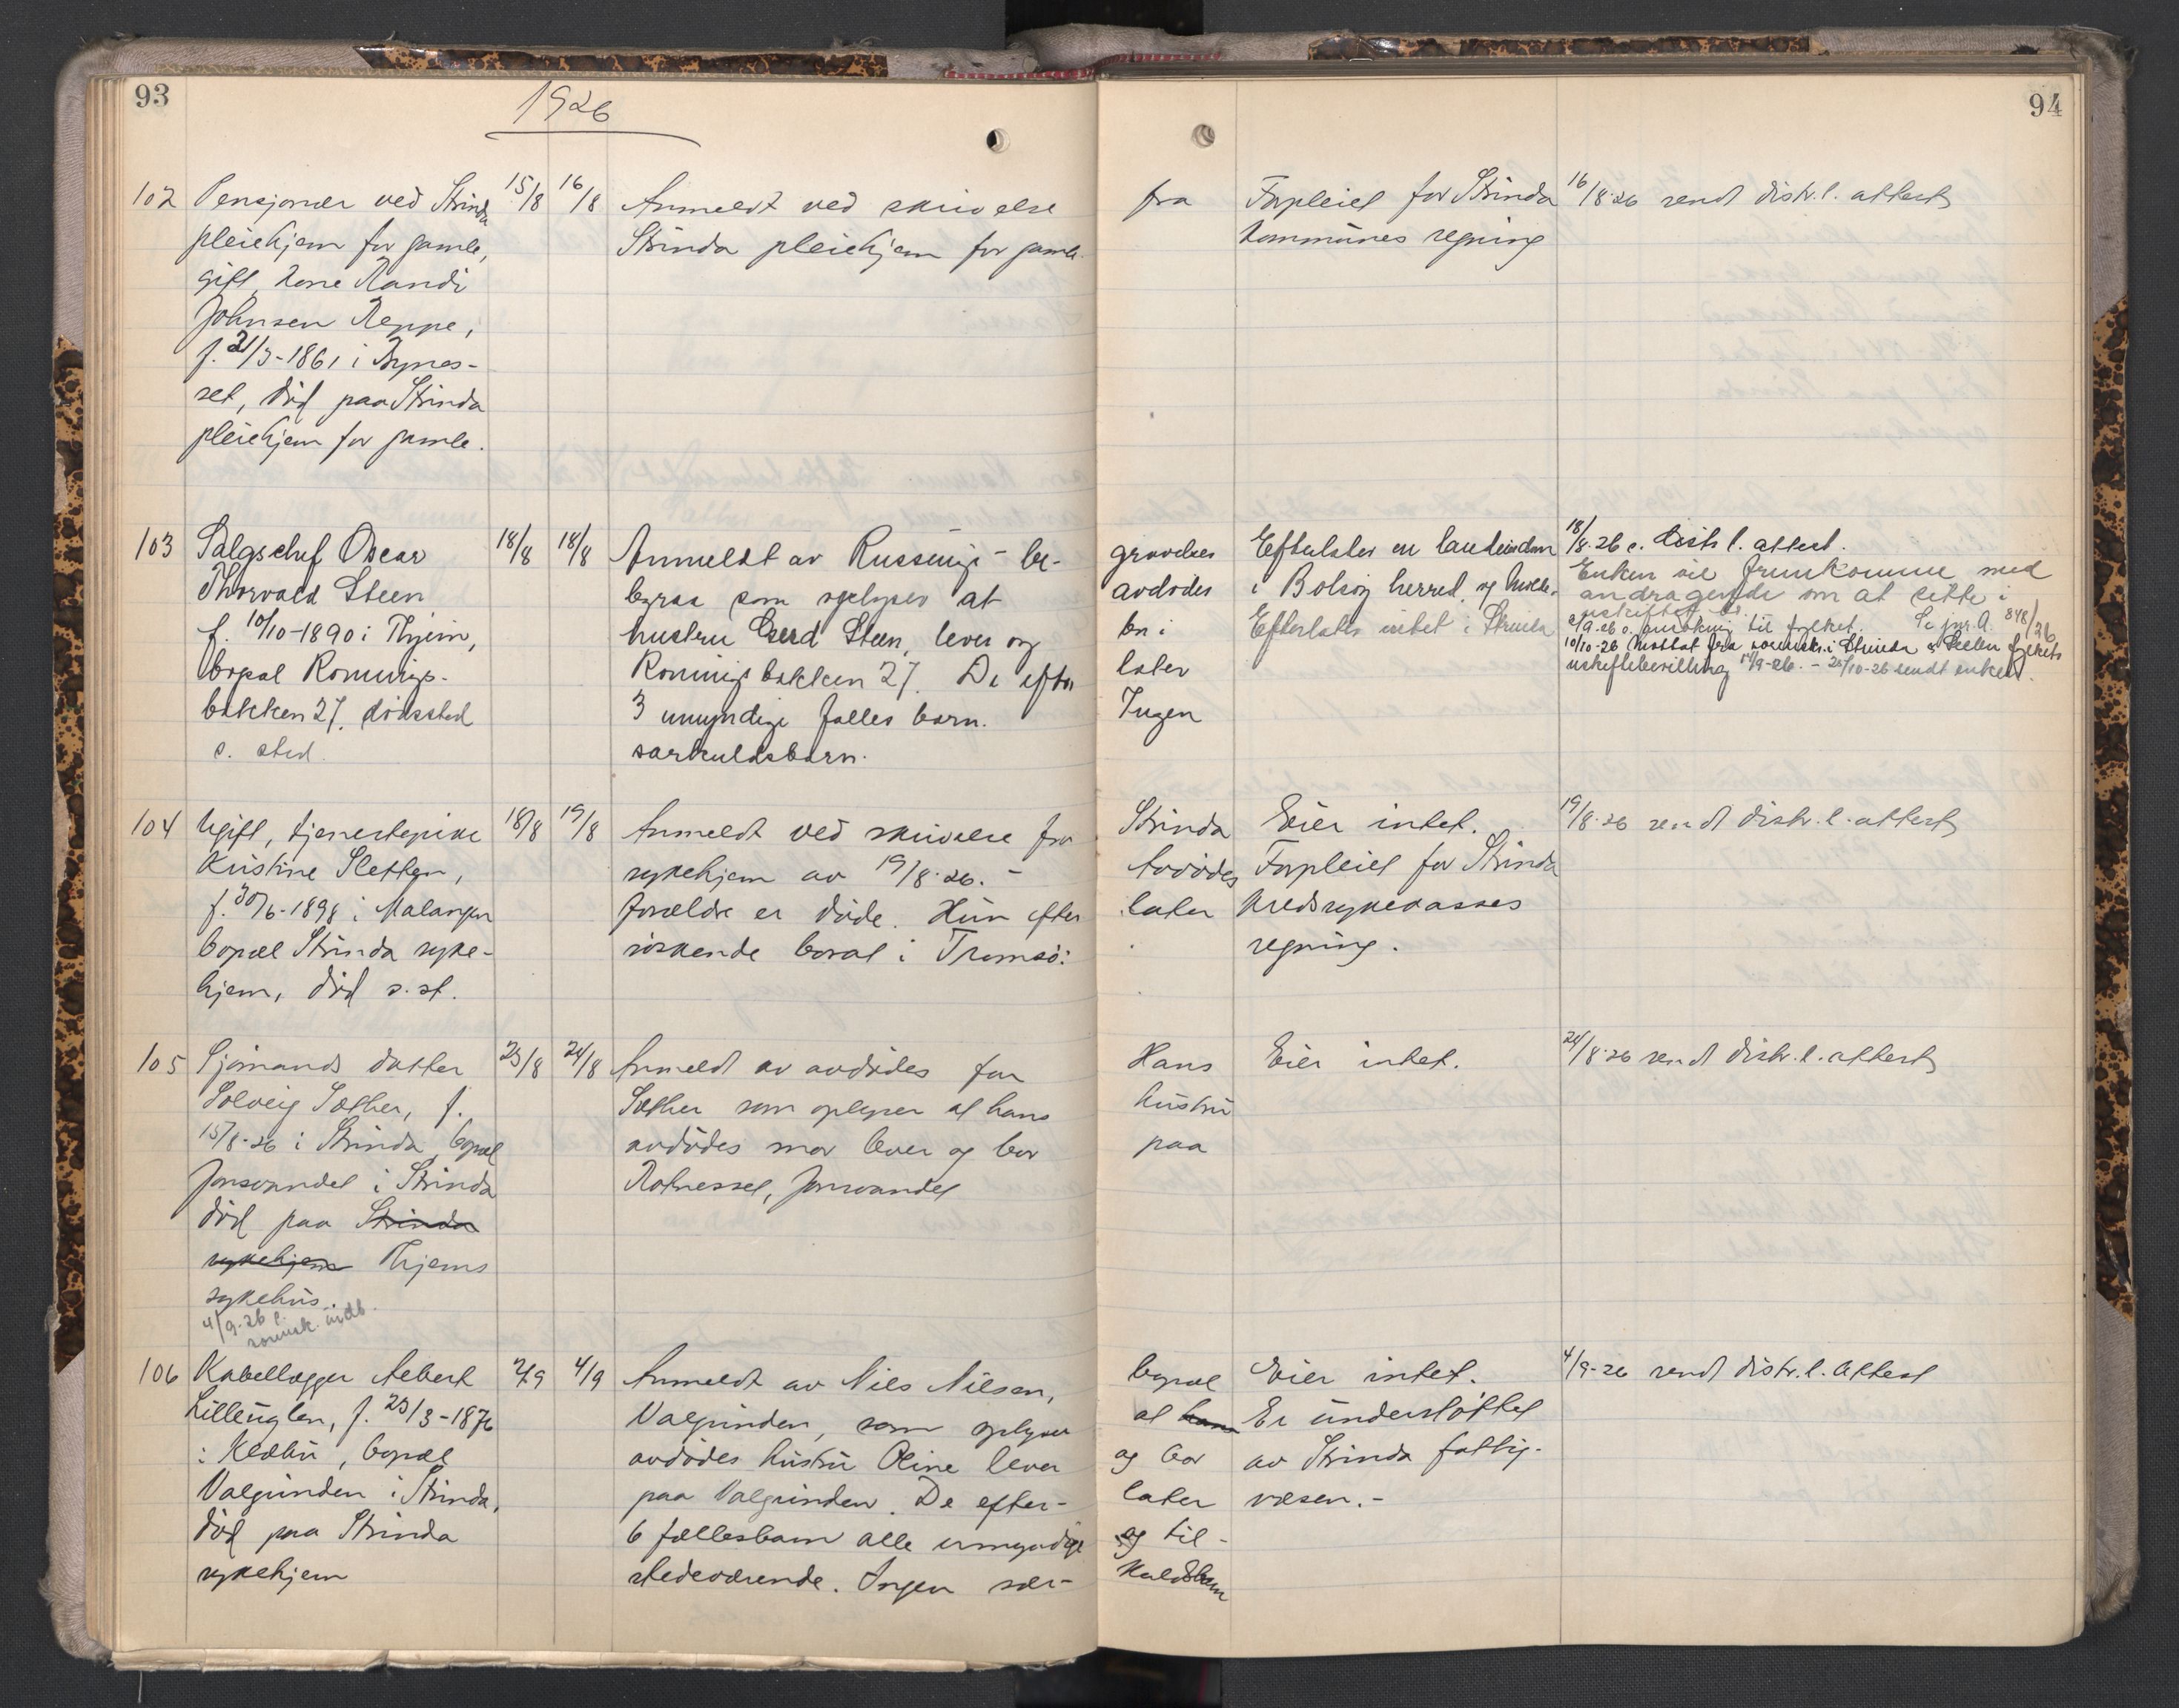 93
1926
94
102 Pensjonær ved Strinda 15/8 16/8 Anmeldt ved skrivelse fra Forpleiet for Strinda 16/8-26 sendt distr.l. attest
pleiehjem for gamle, Strinda pleiehjem for gamle. kommunes regning
gift, kone Randi
Johnsen Reppe,
f. 21/3-1861 i Bynes-
set, død paa Strinda
pleiehjem for gamle.
103 Salgschef Oscar 18/8 18/8 Anmeldt av Russeng's be- gravelses Efterlater en landeiendom 18/8-26 s. distr l. attest.
Thorvald Steen byraa som oplyser at avdødes i Bolsøy herred, og
f. 10/10-1890 i Thjem, hustru Gerd Steen, lever og bor i Efterlater intet i Strinda
bopæl Ronnings- Ronningsbakken 27. De efter later
bakken 27, dødssted 3 umyndige fælles barn. Ingen
s. sted. særkuldsbarn.
Enken vil fremkomme med
andragende om at sitte i
uskiftet bo.
2/9-26 s. ansøkning til fylket. Se jnr. A. 848/26
10/10-26 Mottat fra sorenskr. i Strinda & Selbu fylkets
uskiftebevilling 17/9-26. - 25/10-26 sendt enken.
104 Ugift, tjenestepike 18/8 19/8 Anmeldt ved skrivelse fra Strinda Eier intet. 19/8-26 sendt distr.l. attest
Kristine Sletten, sykehjem av 19/8-26. - Avdødes Forpleiet for Strinda
f. 30/6-1898 i Malangen forældre er døde. Hun efter later kredssykekasses
bopæl Strinda syke- søskende bosat i Tromsø: regning.
hjem, død s.st.
105 Sjømands datter 23/8 24/8 Anmeldt av avdødes far Hans Eier intet. 24/8-26 sendt distr.l. attest
Solveig Sæther, f. Sæther som oplyser at hans hustru
15/8-26 i Strinda, bopæl avdødes mor lever og bor paa
Jonsvandet i Strinda Rotnesset, Jonsvandet
død paa Strinda
sykehjem Thjems
sykehus.
4/9-26 s.
sorensk. indb.
106 Kabellægger Albert 2/9 4/9 Anmeldt av Nils Nilsen, bopæl Eier intet. 4/9-26 sendt distr.l. attest
Lilleuglen, f. 23/3-1876 Valgrinden, som oplyser at hans Er understøttet
i Klæbu, bopæl avdødes hustru Oline lever og bor av Strinda fattig-
Valgrinden i Strinda, paa Valgrinden. De efter- later væsen.-
død paa Strinda 6 fællesbarn alle umyndige og til-
sykehjem stedeværende. Ingen sær- kuldsbarn